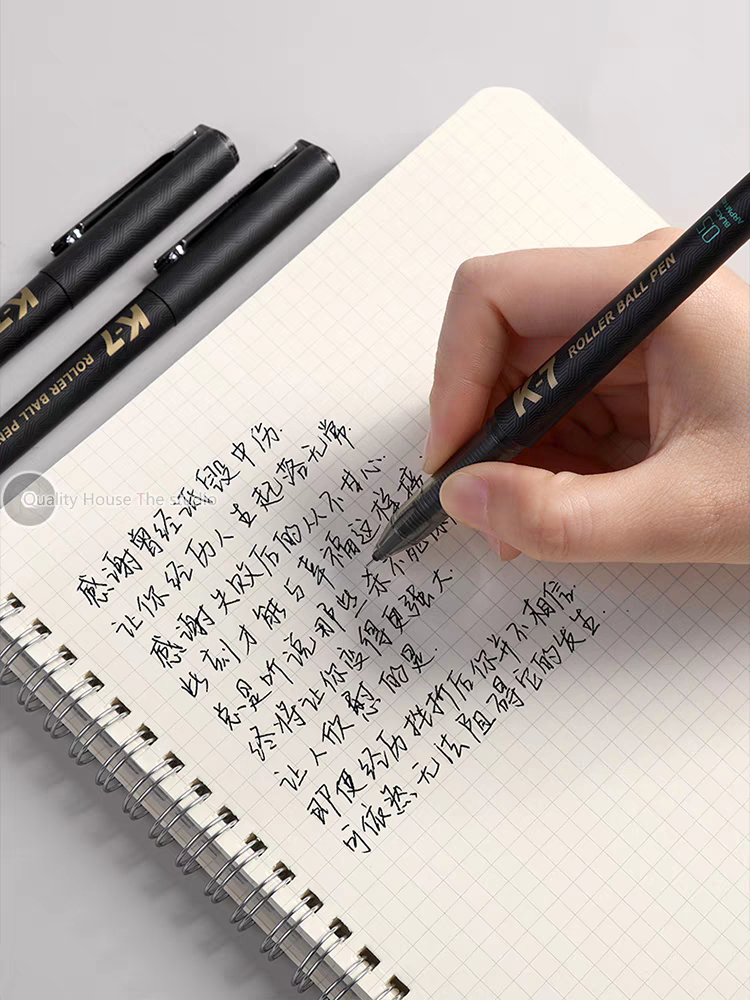 K-7
K-7 ROLLER BALL PEN
0.5
BLACK
K-7 ROLLER BALL PEN
Quality House The studio
感谢曾经诋毁中伤.
让你经历人生起落无常.
感谢失败后的从不甘心.
此刻才能与幸福这样
总是听说那些杀不死你
终将让你变得更强大.
让人欣慰的是.
即便经历挫折后你并不相信.
可依然无法阻碍它的发生.